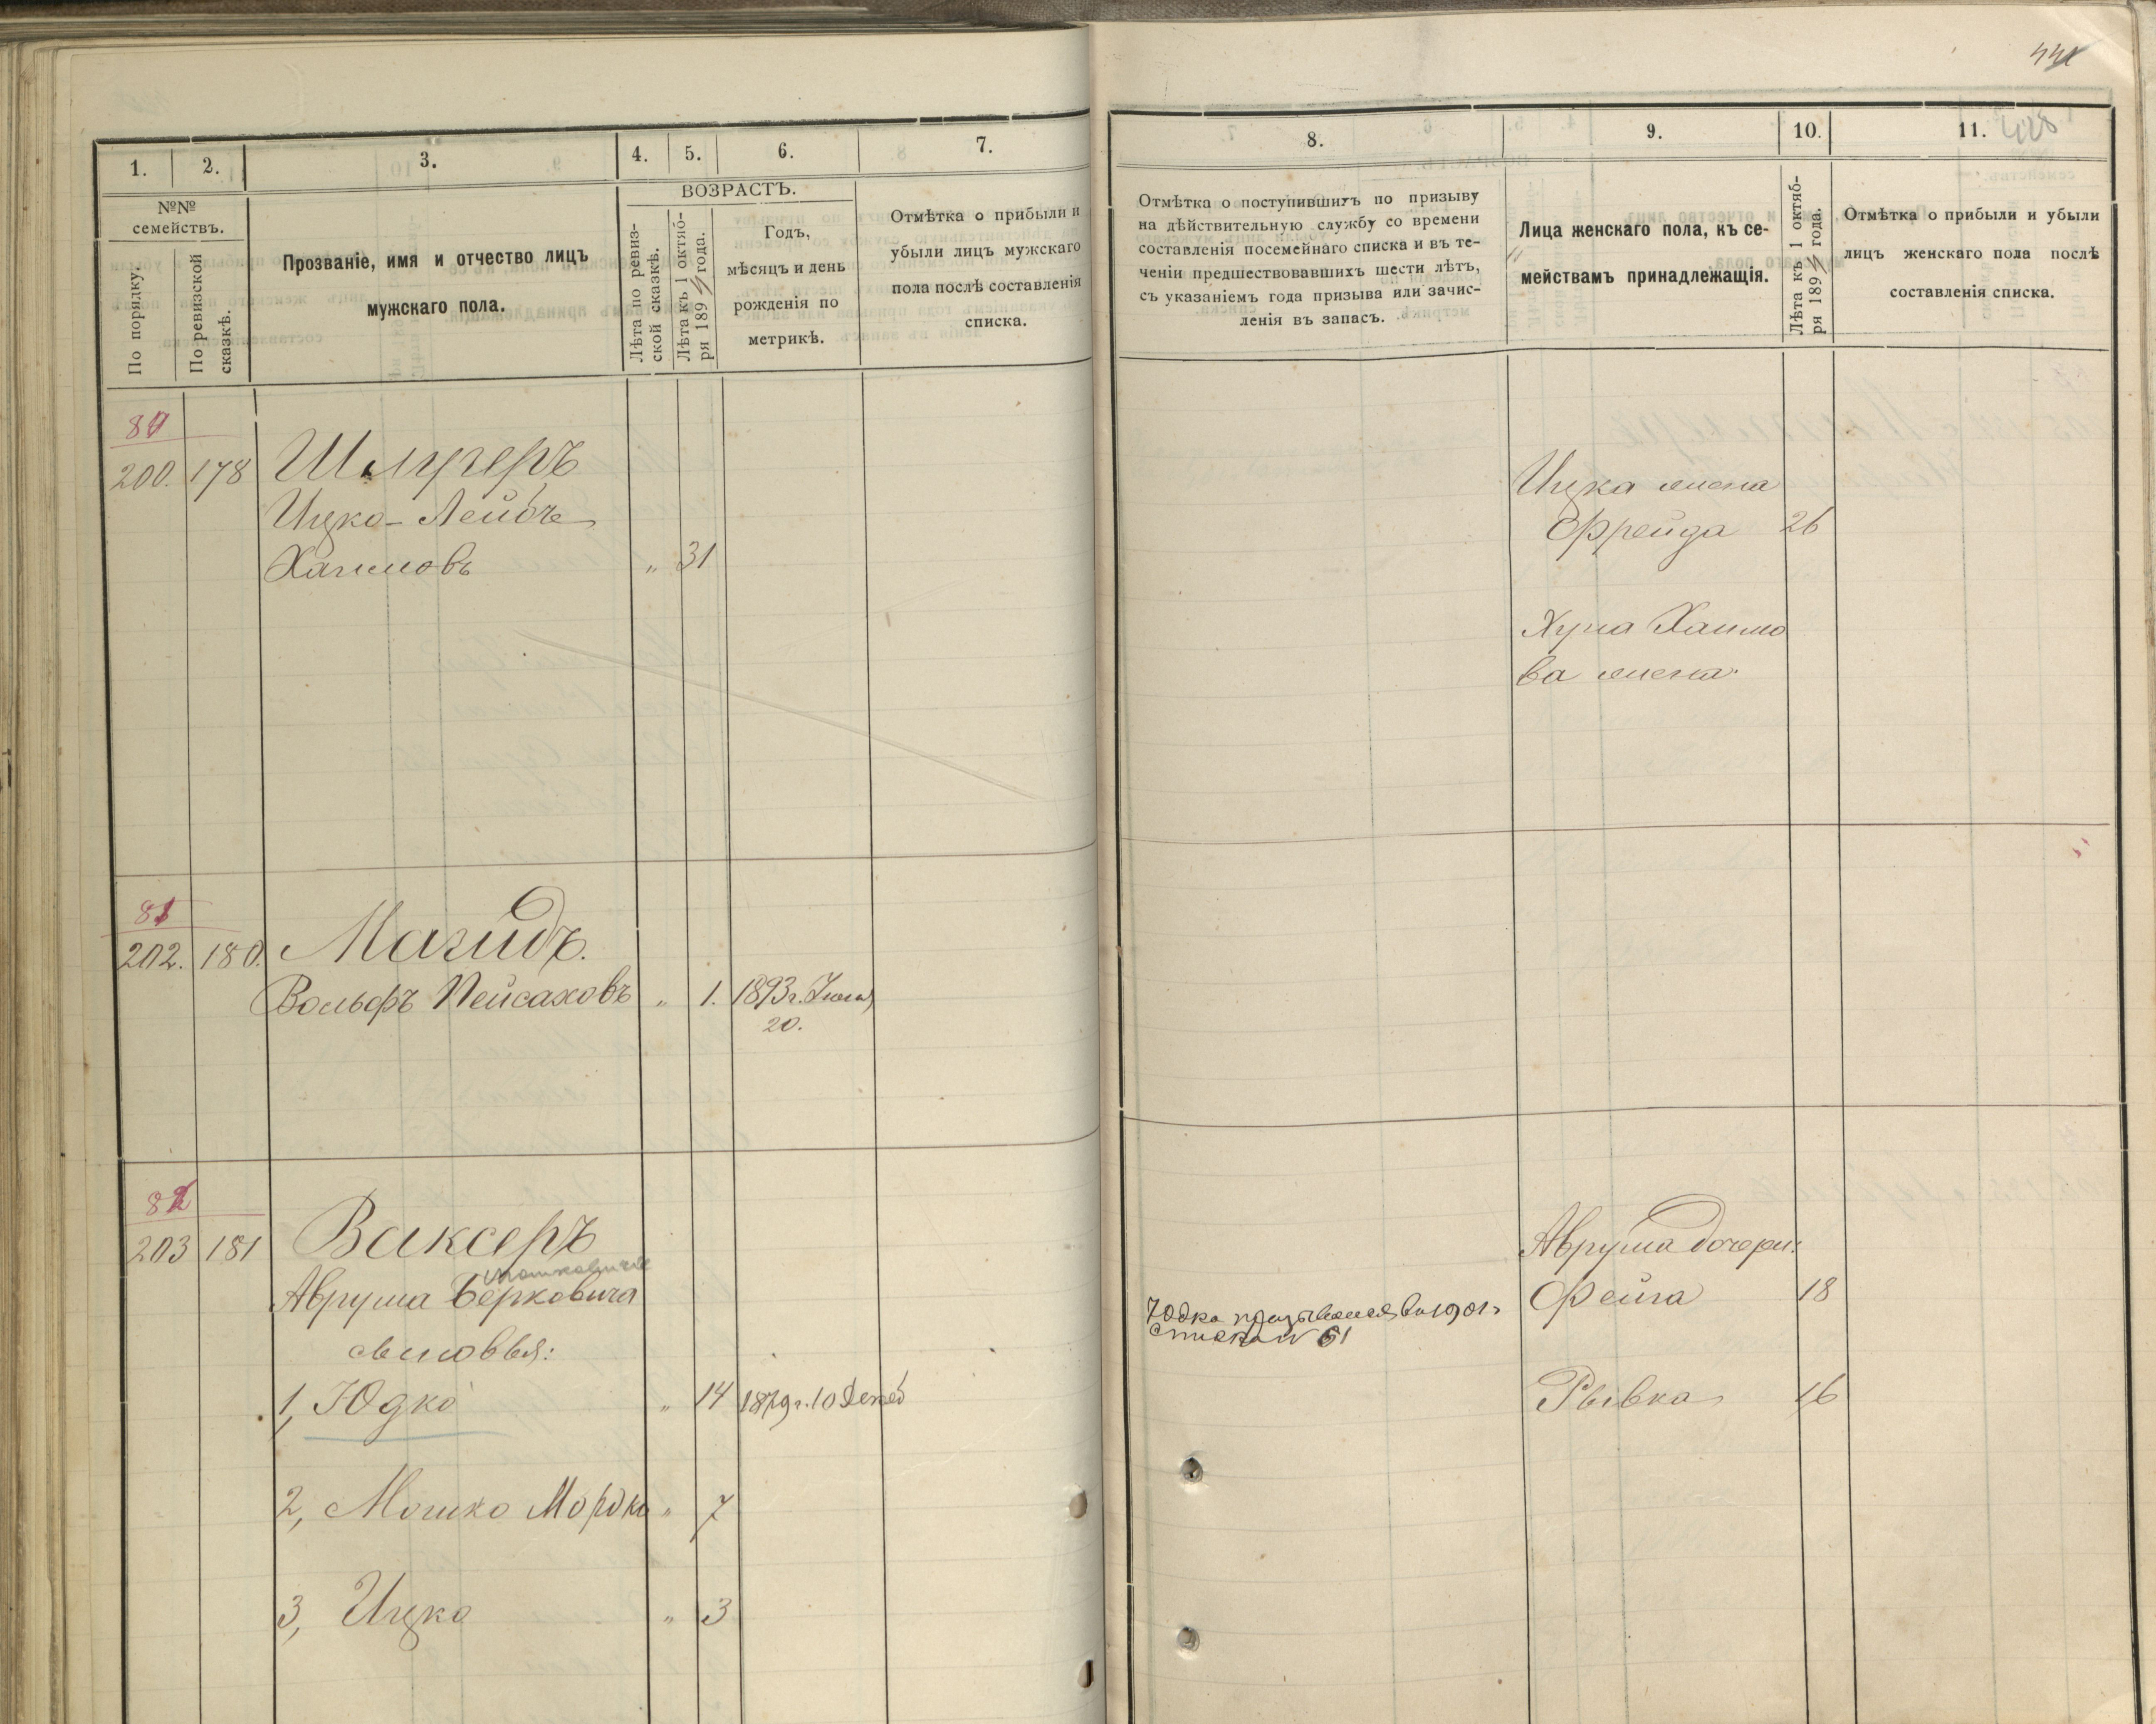 1.
2.
3.
4.
5.
6.
7.
№№ семействъ.
По порядку.
По ревизской сказкѣ.
Прозваніе, имя и отчество лицъ
мужскаго пола.
ВОЗРАСТЪ.
Лѣта по ревиз-
ской сказкѣ.
Лѣта къ 1 октяб-
ря 189 года.
Годъ,
мѣсяцъ и день
рожденія по
метрикѣ.
Отмѣтка о прибыли и
убыли лицъ мужскаго
пола послѣ составленія
списка.
200. 178
Ицко-Лейбъ
Хаимовъ " 31
81
202. 180. Магидъ.
Вольфъ Пейсаховъ " 1. 1893 г.
20.
82
203 181 Ваксеръ
Аврума Берковича
сыновья:
1, Юдко " 14 1879 г. 10 Декаб
2, Мошко Мороко " 7
3, Ицко " 3
8.
9.
10.
11. 428
Отмѣтка о поступившихъ по призыву
на дѣйствительную службу со времени
составленія посемейнаго списка и въ те-
ченіи предшествовавшихъ шести лѣтъ,
съ указаніемъ года призыва или зачис-
ленія въ запасъ.
Лица женскаго пола, къ се-
мействамъ принадлежащія.
Лѣта къ 1 октяб-
ря 189 года.
Отмѣтка о прибыли и убыли
лицъ женскаго пола послѣ
составленія списка.
Ицка жена
Фрейда 26
Хаимо
ва жена
Аврума дочери:
Фейга 18
Юдко призывался въ 1901 г
списка № 61
Рывка 16